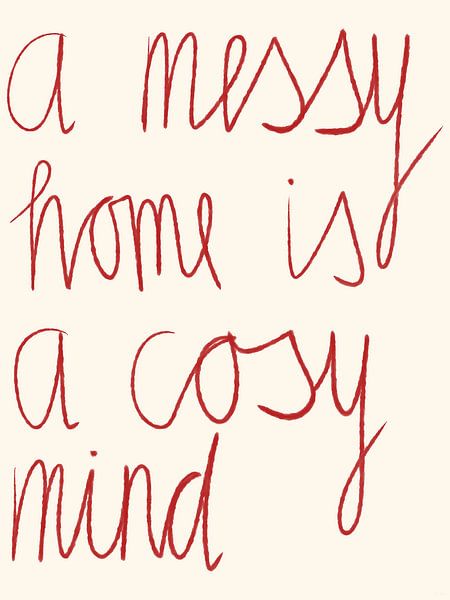 a messy
home is
a cosy
mind